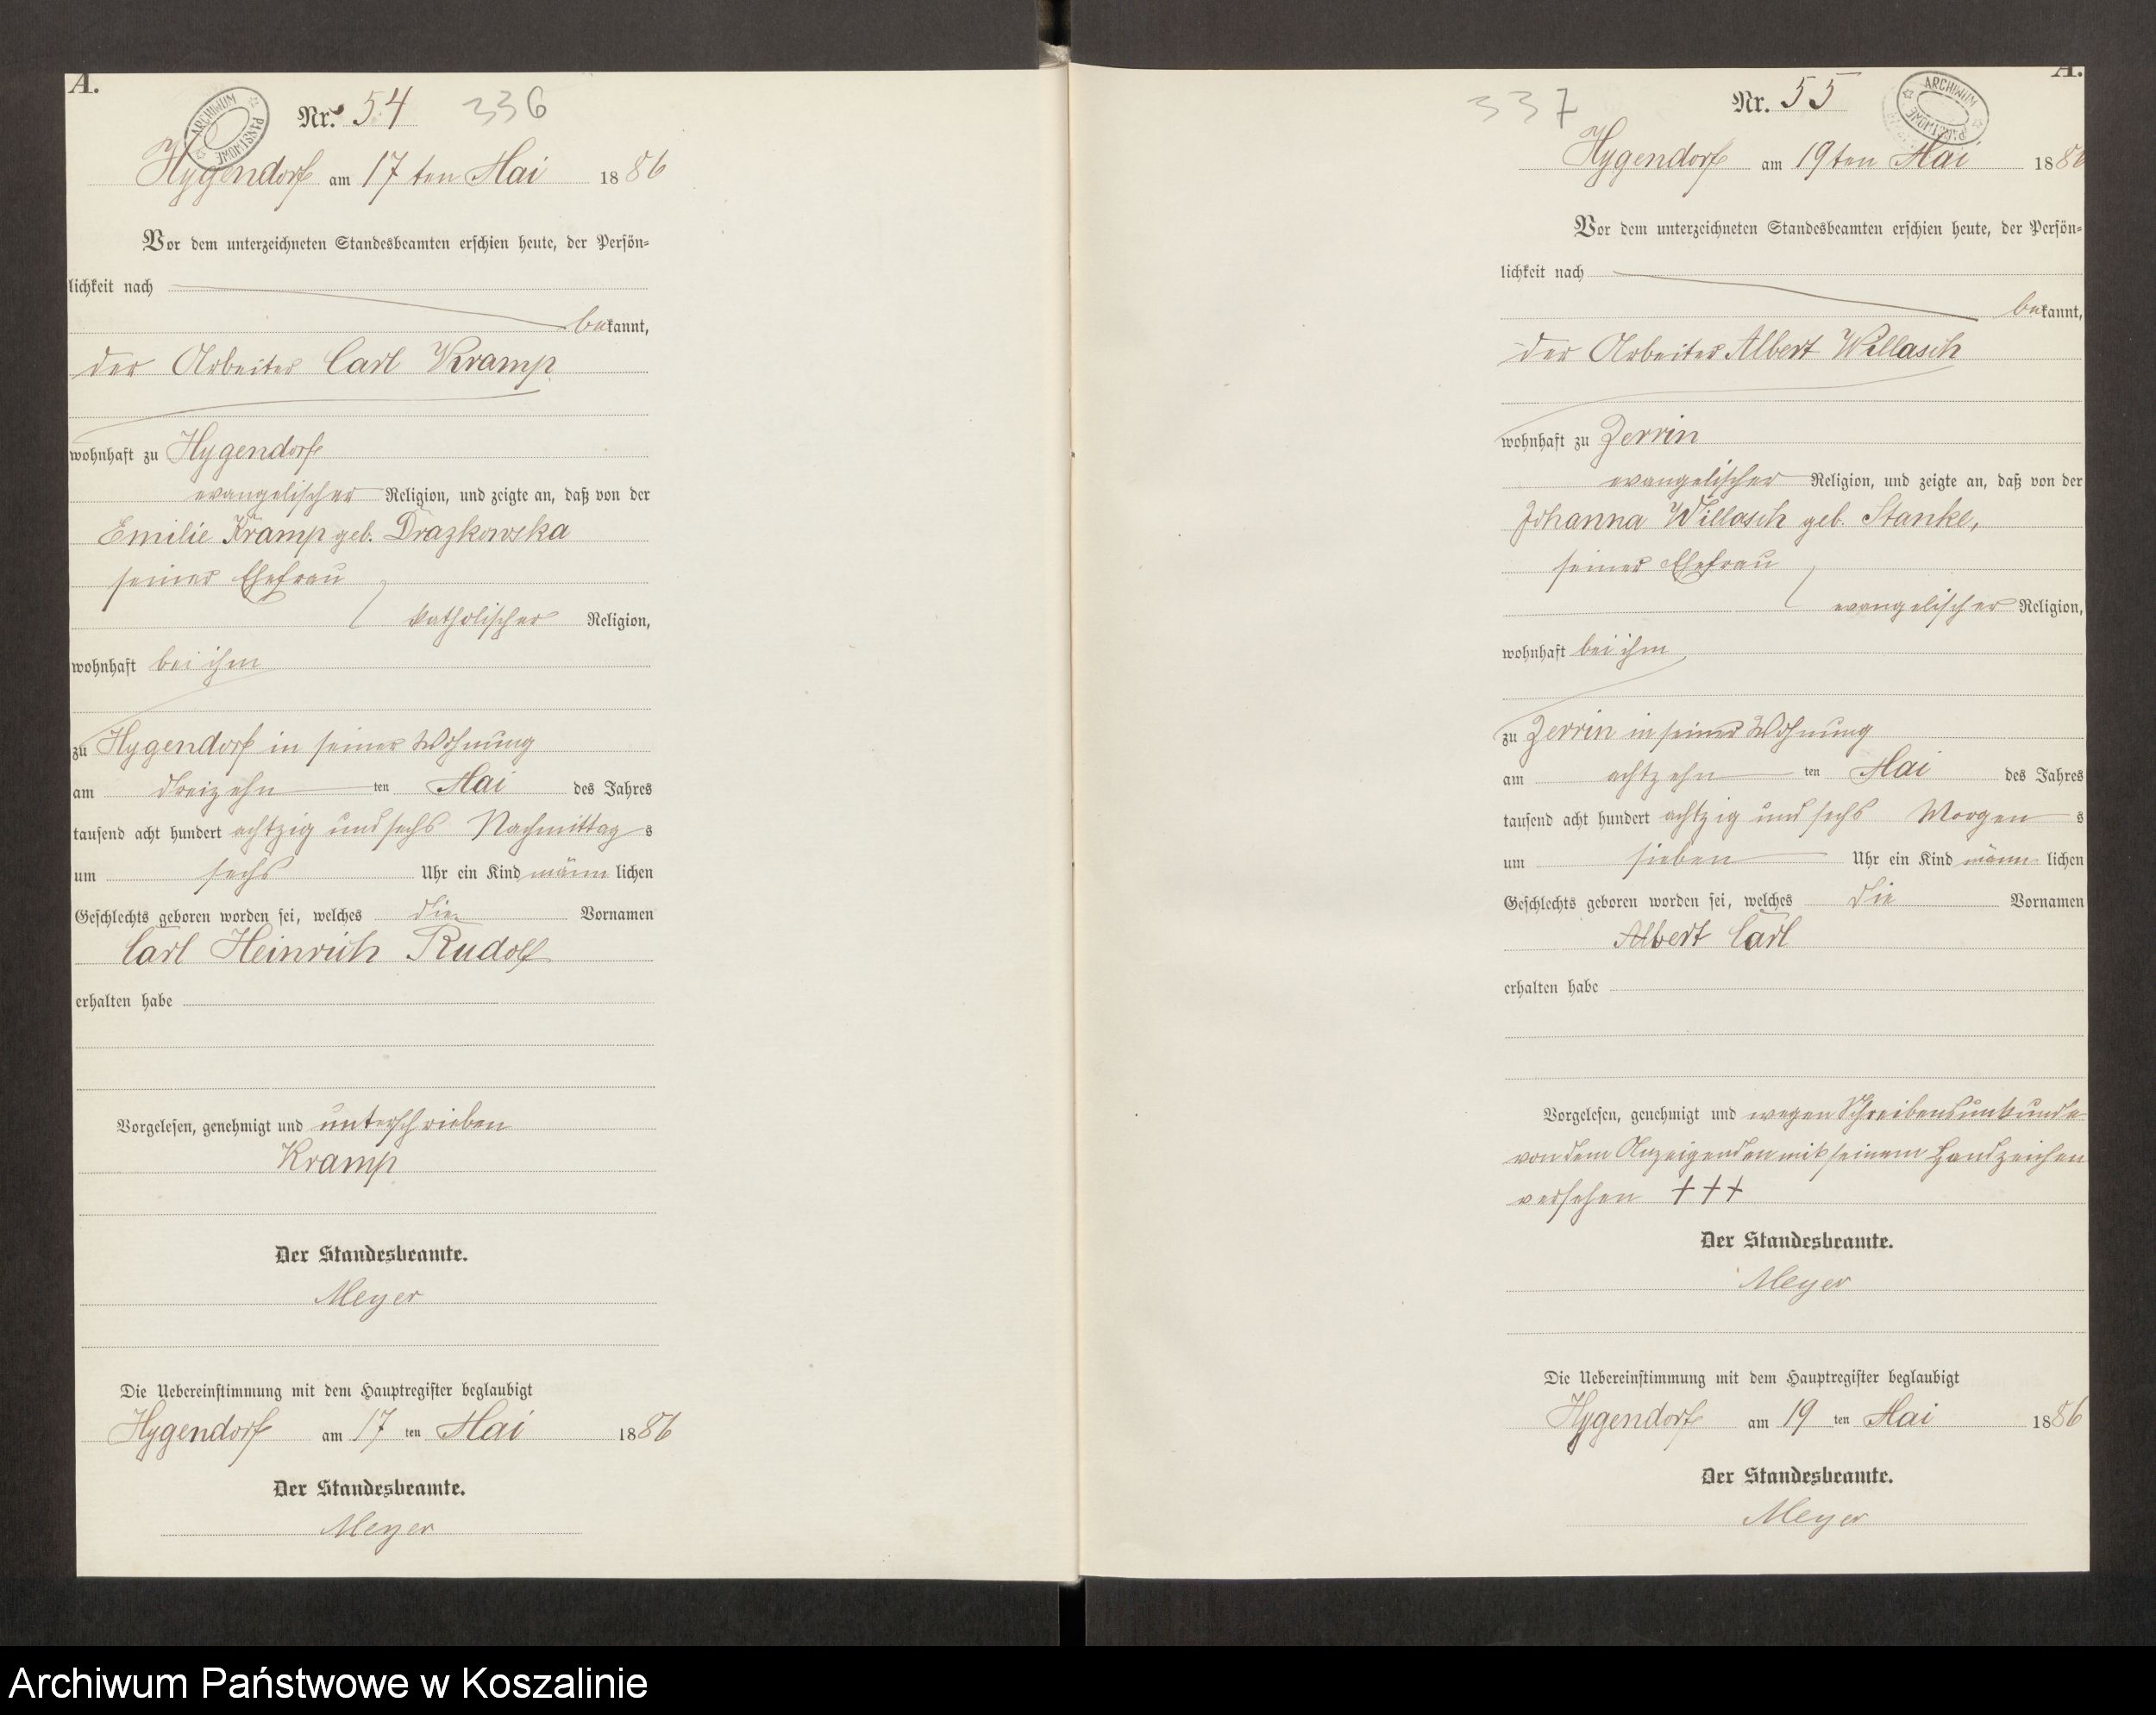 A.
ARCHIWUM PAŃSTWOWE
Nr. 54 336
Hygendorf am 17ten Mai 1886
Vor dem unterzeichneten Standesbeamten erschien heute, der Persön-
lichkeit nach
bekannt,
der Arbeiter Carl Kramp
wohnhaft zu Hygendorf
evangelischer Religion, und zeigte an, daß von der
Emilie Kramp geb. Drazkowska
seiner Ehefrau
katholischer Religion,
wohnhaft bei ihm
zu Hygendorf in seiner Wohnung
am dreizehn ten Mai des Jahres
tausend acht hundert achtzig und sechs Nachmittag s
um sechs Uhr ein Kind männ lichen
Geschlechts geboren worden sei, welches die Vornamen
Carl Heinrich Rudolf
erhalten habe
Vorgelesen, genehmigt und unterschrieben
Kramp
Der Standesbeamte.
Meyer
Die Uebereinstimmung mit dem Hauptregister beglaubigt
Hygendorf am 17 ten Mai 1886
Der Standesbeamte.
Meyer
A.
337 Nr. 55
ARCHIWUM PAŃSTWOWE
Hygendorf am 19ten Mai 1886
Vor dem unterzeichneten Standesbeamten erschien heute, der Persön-
lichkeit nach
bekannt,
der Arbeiter Albert Willasch
wohnhaft zu Zerrin
evangelischer Religion, und zeigte an, daß von der
Johanna Willasch geb. Stanke,
seiner Ehefrau
evangelischer Religion,
wohnhaft bei ihm
zu Zerrin in seiner Wohnung
am achtzehn ten Mai des Jahres
tausend acht hundert achtzig und sechs Morgen s
um sieben Uhr ein Kind männ lichen
Geschlechts geboren worden sei, welches die Vornamen
Albert Carl
erhalten habe
Vorgelesen, genehmigt und wegen Schreibensunkunde
von dem Anzeigenden mit seinem Handzeichen
versehen +++
Der Standesbeamte.
Meyer
Die Uebereinstimmung mit dem Hauptregister beglaubigt
Hygendorf am 19 ten Mai 1886
Der Standesbeamte.
Meyer
Archiwum Państwowe w Koszalinie